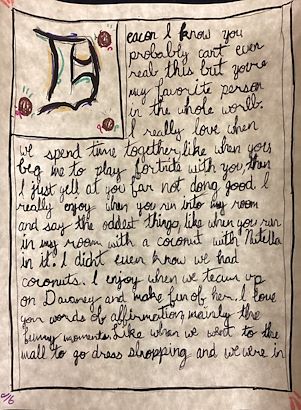 Deacon I know you
probably cant even
real this but you're
my favorite person
in the whole world.
I really love when
we spend time together, like when you
beg me to play fortnite with you then
I just yell at you for not doing good. I
really enjoy when you run into my room
and say the oddest things, like when you run
in my room with a coconut with Nutella
in it. I didn't even know we had
coconuts. I enjoy when we team up
on and make fun of her. I love
your words of affirmation, mainly the
funny moments. Like when we went to the
mall to go dress shopping and we were in